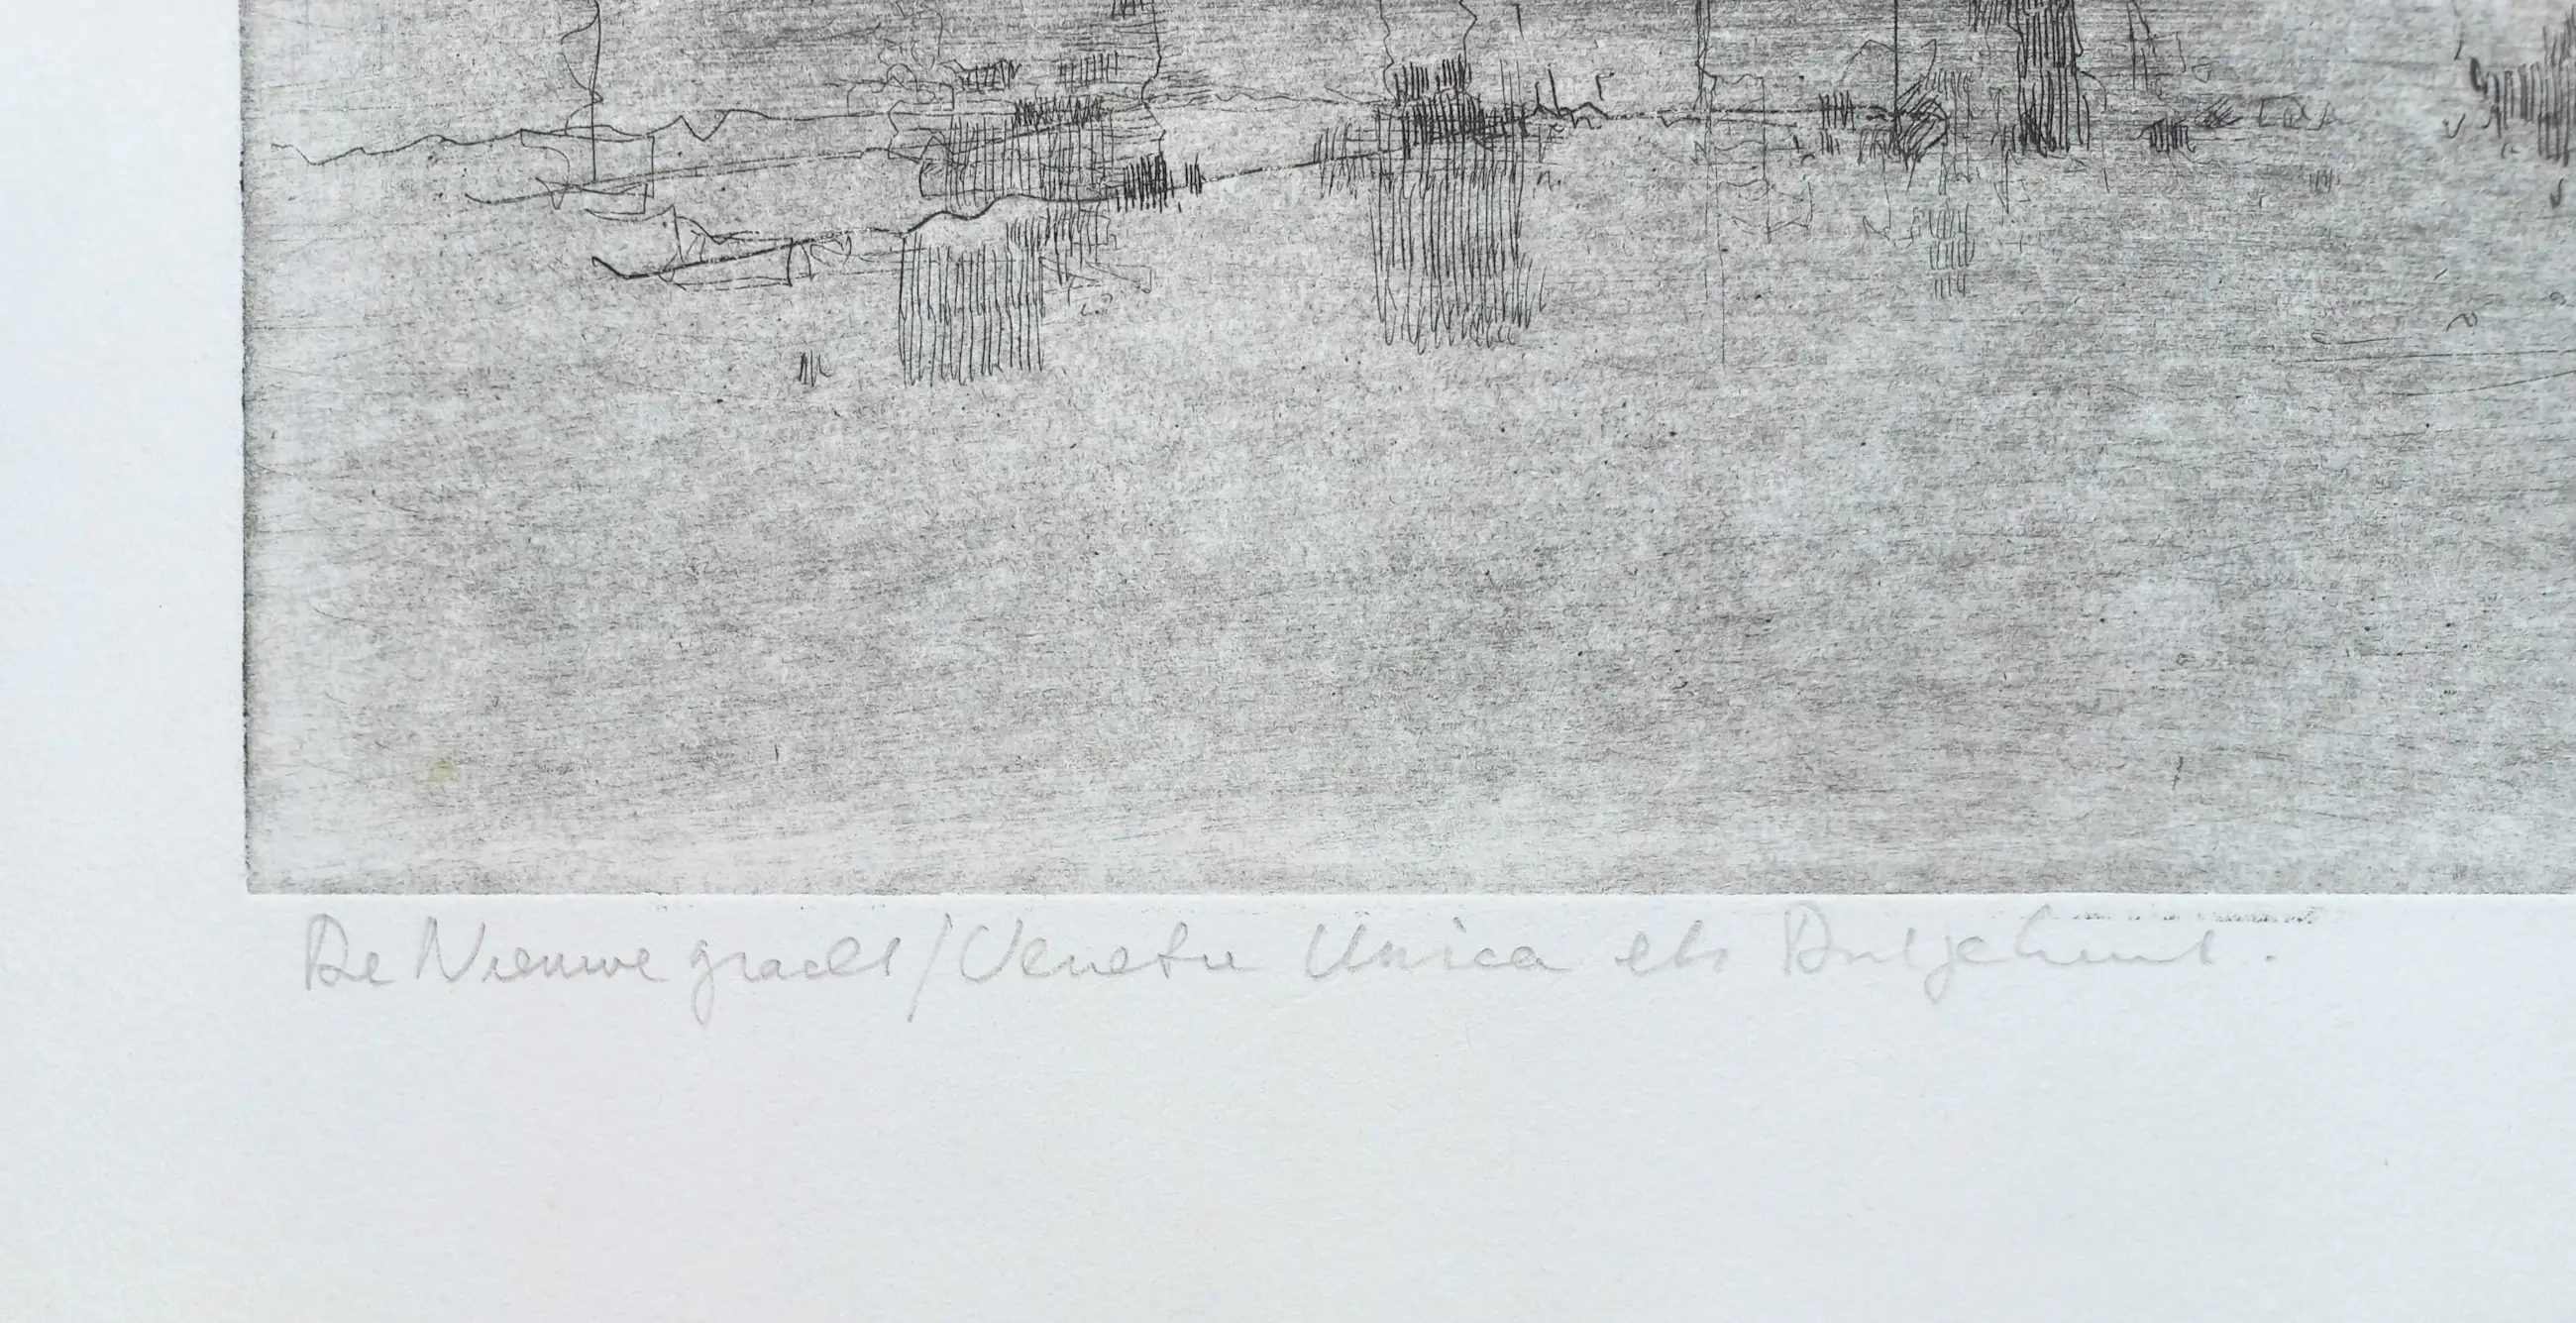 De Nieuwe gracht/Venetie Unica ets